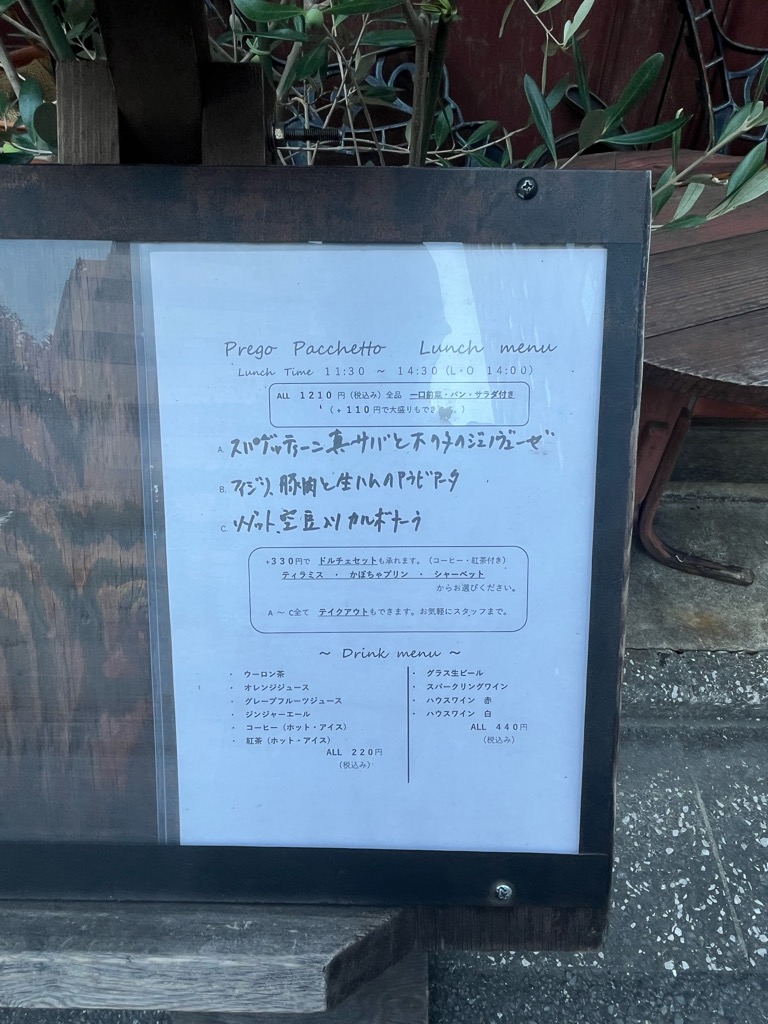 Prego Pacchetto Lunch menu
Lunch Time 11:30 ~ 14:30 (L・O 14:00)
ALL 1210円（税込み）全品 一口前菜・パン・サラダ付き
（+110円で大盛りもでき 。）
A. スパゲッティーニ 真サバとキノコのジェノヴェーゼ
B. フィジリ 豚肉と生ハムのアラビアータ
C リゾット 空豆入りカルボナーラ
+330円で ドルチェセットも承れます。（コーヒー・紅茶付き）
ティラミス ・ かぼちゃプリン ・ シャーベット
からお選びください。
A ～ C全て テイクアウトもできます。お気軽にスタッフまで。
～ Drink menu ～
・ ウーロン茶
・ オレンジジュース
・ グレープフルーツジュース
・ ジンジャーエール
・ コーヒー（ホット・アイス）
・ 紅茶（ホット・アイス）
ALL 220円
（税込み）
・ グラス生ビール
・ スパークリングワイン
・ ハウスワイン 赤
・ ハウスワイン 白
ALL 440円
（税込み）